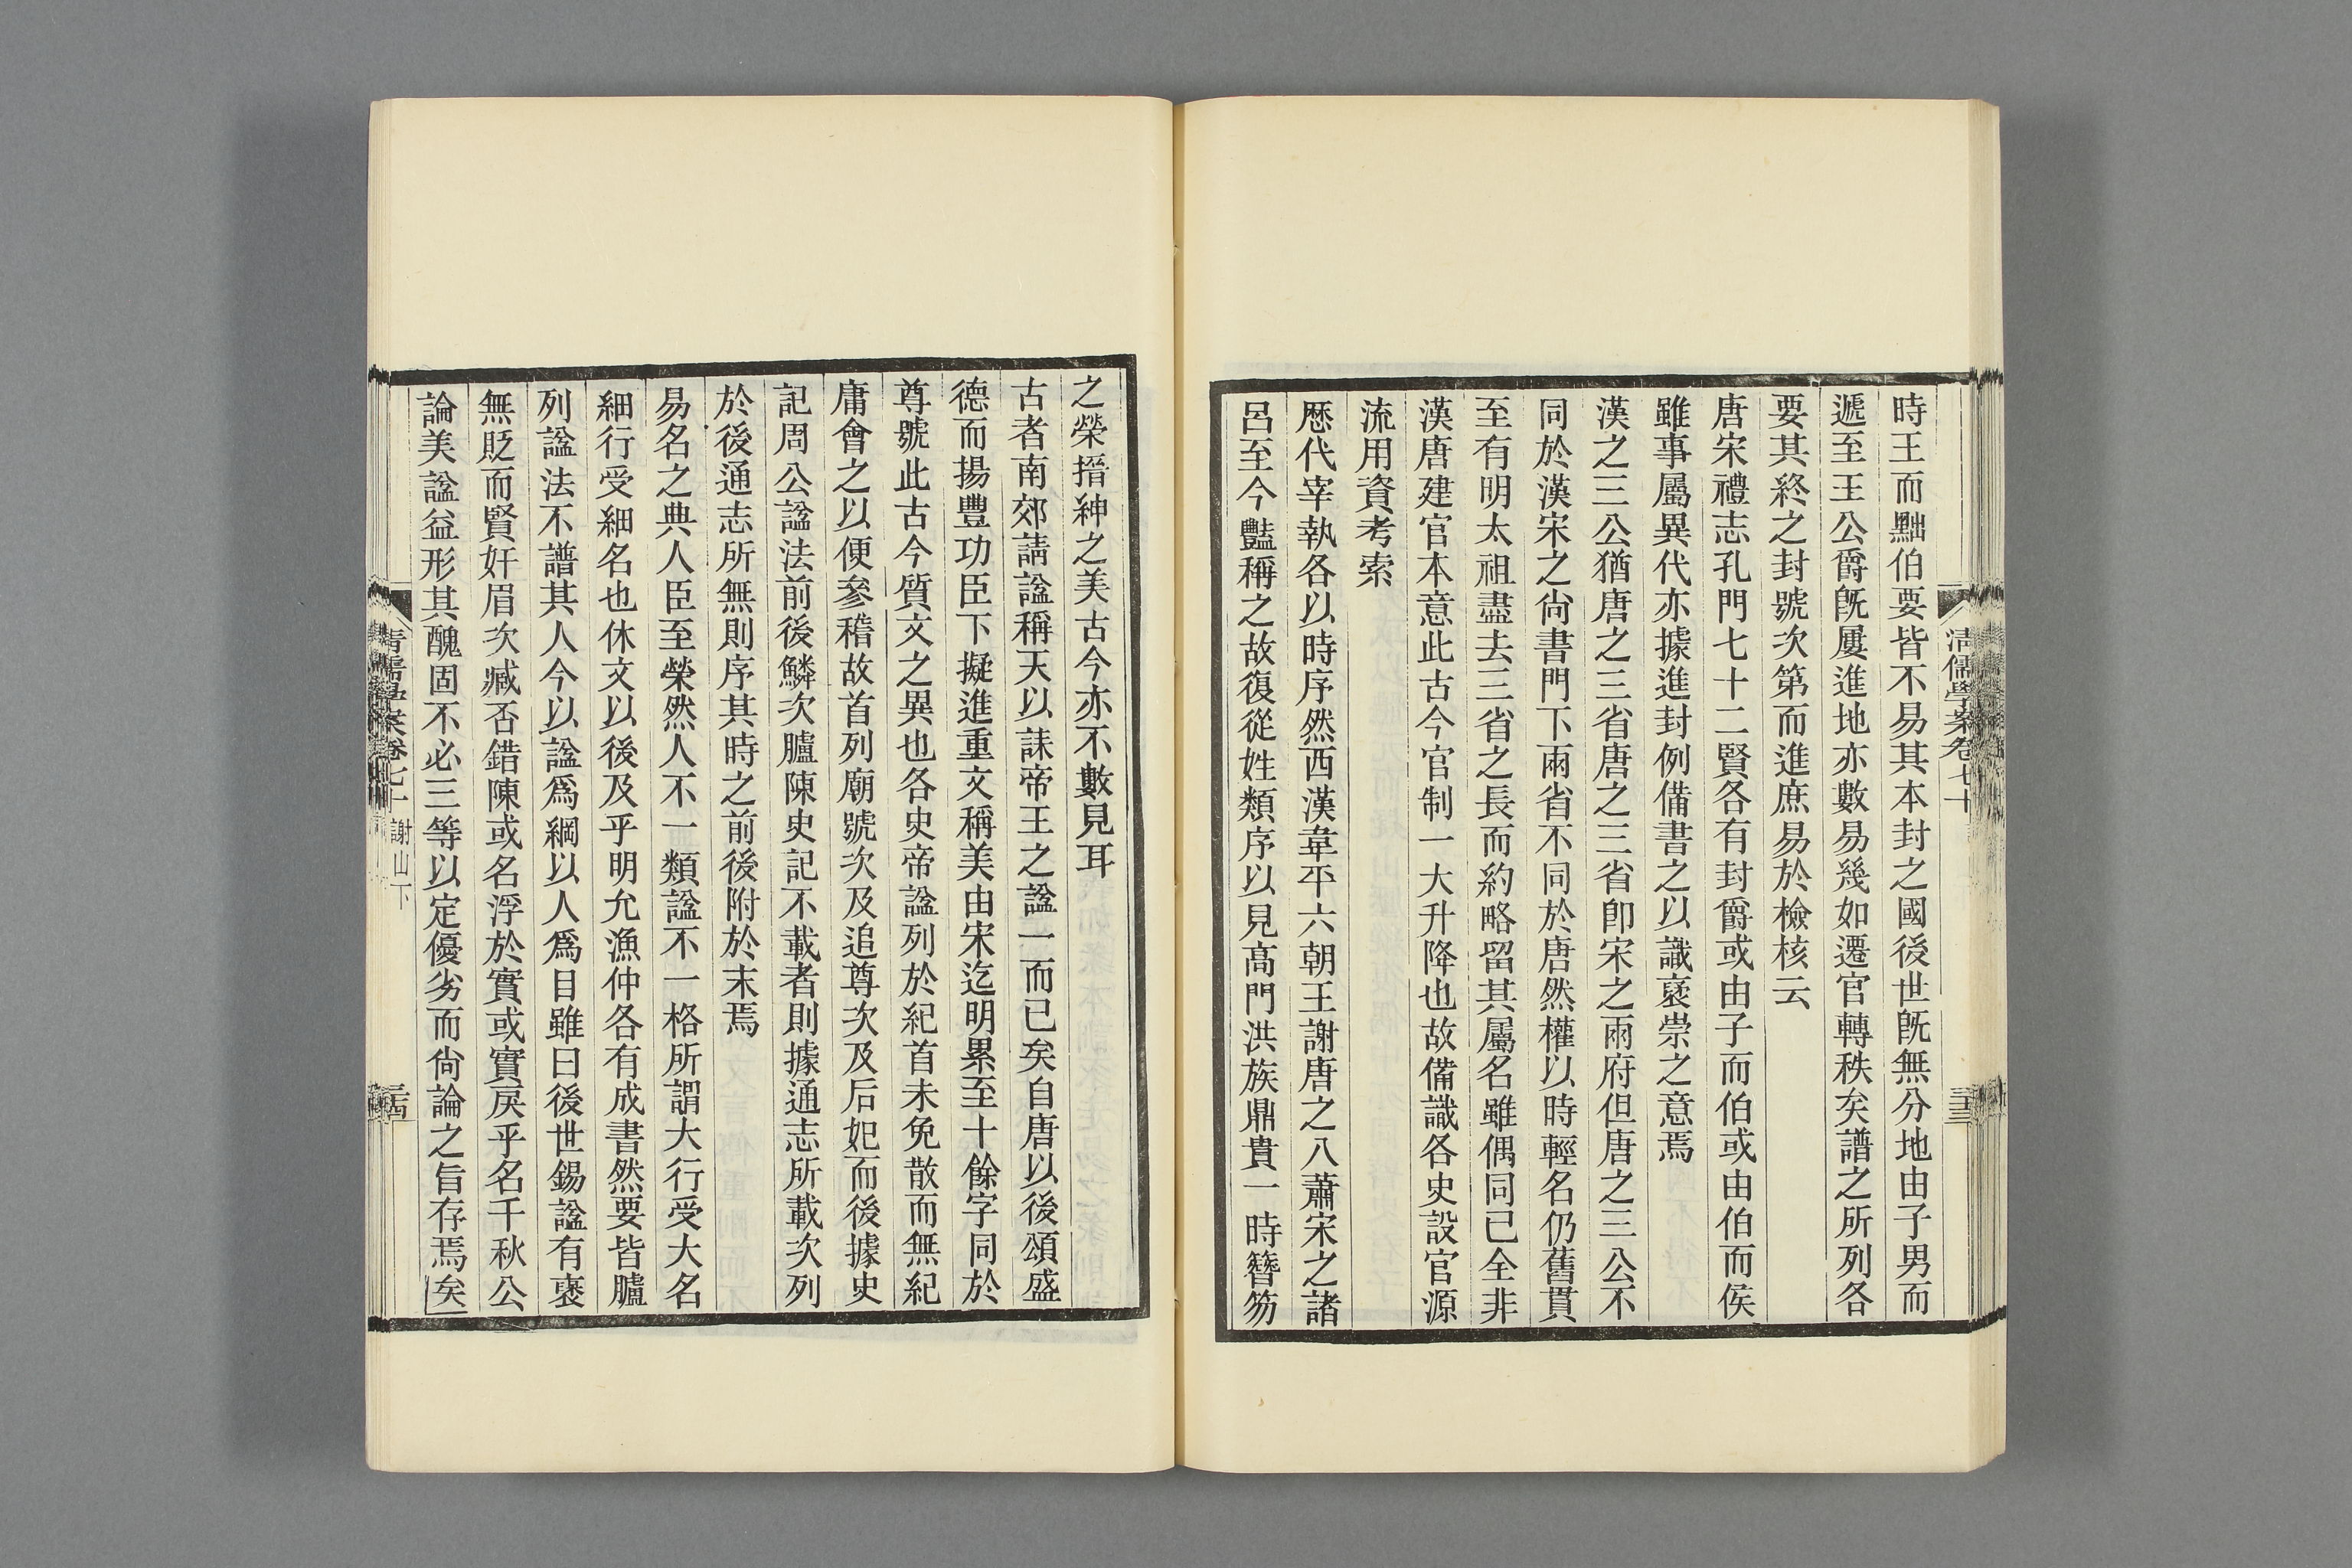 清儒學案卷七十
三十三
時王而黜伯要皆不易其本封之國後世旣無分地由子男而
遞至王公爵旣屢進地亦數易幾如遷官轉秩矣譜之所列各
要其終之封號次第而進庶易於檢核云
唐宋禮志孔門七十二賢各有封爵或由子而伯或由伯而侯
雖事屬異代亦據進封例備書之以識襃崇之意焉
漢之三公猶唐之三省唐之三省卽宋之兩府但唐之三公不
同於漢宋之尙書門下兩省不同於唐然權以時輕名仍舊貫
至有明太祖盡去三省之長而約略留其屬名雖偶同已全非
漢唐建官本意此古今官制一大升降也故備識各史設官源
流用資考索
歷代宰執各以時序然西漢韋平六朝王謝唐之八蕭宋之諸
呂至今豔稱之故復從姓類序以見高門洪族鼎貴一時簪笏
之榮搢紳之美古今亦不數見耳
古者南郊請諡稱天以誄帝王之諡一而已矣自唐以後頌盛
德而揚豐功臣下擬進重文稱美由宋迄明累至十餘字同於
尊號此古今質文之異也各史帝諡列於紀首未免散而無紀
庸會之以便參稽故首列廟號次及追尊次及后妃而後據史
記周公諡法前後鱗次臚陳史記不載者則據通志所載次列
於後通志所無則序其時之前後附於末焉
易名之典人臣至榮然人不一類諡不一格所謂大行受大名
細行受細名也休文以後及乎明允漁仲各有成書然要皆臚
列諡法不譜其人今以諡爲綱以人爲目雖曰後世錫諡有襃
無貶而賢奸眉次臧否錯陳或名浮於實或實戾乎名千秋公
論美諡益形其醜固不必三等以定優劣而尙論之旨存焉矣
清儒學案卷七十 謝山下
三十四